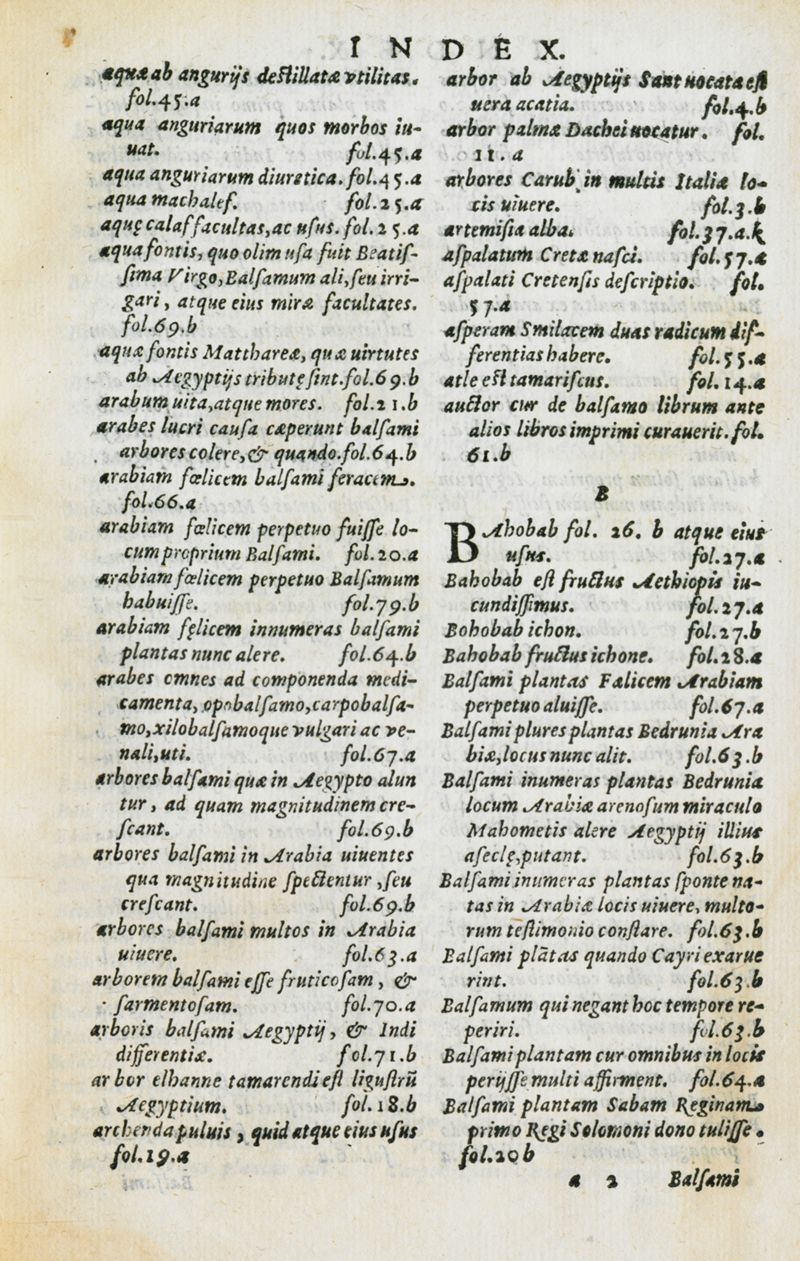 INDEX.
aquæ ab angurijs deſtillatæ vtilitas.
fol.45.a
aqua anguriarum quos morbos iu-
uat. fol.45.a
aqua anguriarum diuretica. fol.45.a
aqua machalef. fol.25.a
aquę calaf facultas, ac uſus. fol.25.a
aqua fontis, quo olim uſa fuit Beatiſ-
ſima Virgo, Balſamum ali, ſeu irri-
gari, atque eius miræ facultates.
fol.69.b
aquæ fontis Matthareæ, quæ uirtutes
ab Aegyptijs tributę ſint. fol.69.b
arabum uita, atque mores. fol.21.b
arabes lucri cauſa cæperunt balſami
arbores colere, & quando. fol.64.b
arabiam fœlicem balſami feracem.
fol.66.a
arabiam fœlicem perpetuo fuiſſe lo-
cum proprium Balſami. fol.20.a
arabiam fœlicem perpetuo Balſamum
habuiſſe. fol.79.b
arabiam fęlicem innumeras balſami
plantas nunc alere. fol.64.b
arabes omnes ad componenda medi-
camenta, opobalſamo, carpobalſa-
mo, xilobalſamoque vulgari ac ve-
nali, uti. fol.67.a
arbores balſami quæ in Aegypto alun
tur, ad quam magnitudinem cre-
ſcant. fol.69.b
arbores balſami in Arabia uiuentes
qua magnitudine ſpectentur, ſeu
creſcant. fol.69.b
arbores balſami multos in Arabia
uiuere. fol.63.a
arborem balſami eſſe fruticoſam, &
ſarmentoſam. fol.70.a
arboris balſami Aegyptij, & Indi
differentiæ. fol.71.b
arbor elhanne tamarendi eſt liguſtrũ
Aegyptium. fol.18.b
archenda puluis, quid atque eius uſus
fol.19.a
arbor ab Aegyptijs Sant uocata eſt
uera acatia. fol.4.b
arbor palmæ Dachel uocatur. fol.
11.a
arbores Carub in multis Italiæ lo-
cis uiuere. fol.3.b
artemiſia alba. fol.37.a.&
aſpalatum Cretæ naſci. fol.57.a
aſpalati Cretenſis deſcriptio. fol.
57.a
aſperam Smilacem duas radicum dif-
ferentias habere. fol.55.a
atle eſt tamariſcus. fol.14.a
auctor cur de balſamo librum ante
alios libros imprimi curauerit. fol.
61.b
B
BAhobab fol. 26. b atque eius
uſus. fol.27.a
Bahobab eſt fructus Aethiopis iu-
cundiſſimus. fol.27.a
Bohobab ichon. fol.27.b
Bahobab fructus ichone. fol.28.a
Balſami plantas Fælicem Arabiam
perpetuo aluiſſe. fol.67.a
Balſami plures plantas Bedrunia Ara
biæ, locus nunc alit. fol.63.b
Balſami inumeras plantas Bedrunia
locum Arabiæ arenoſum miraculo
Mahometis alere Aegyptij illius
aſeclę, putant. fol.63.b
Balſami inumeras plantas ſponte na-
tas in Arabiæ locis uiuere, multo-
rum teſtimonio conſtare. fol.63.b
Balſami plãtas quando Cayri exarue
rint. fol.63.b
Balſamum qui negant hoc tempore re-
periri. fol.63.b
Balſami plantam cur omnibus in locis
perijſſe multi affirment. fol.64.a
Balſami plantam Sabam Reginam
primo Regi Solomoni dono tuliſſe.
fol.20b
a 2 Balſami